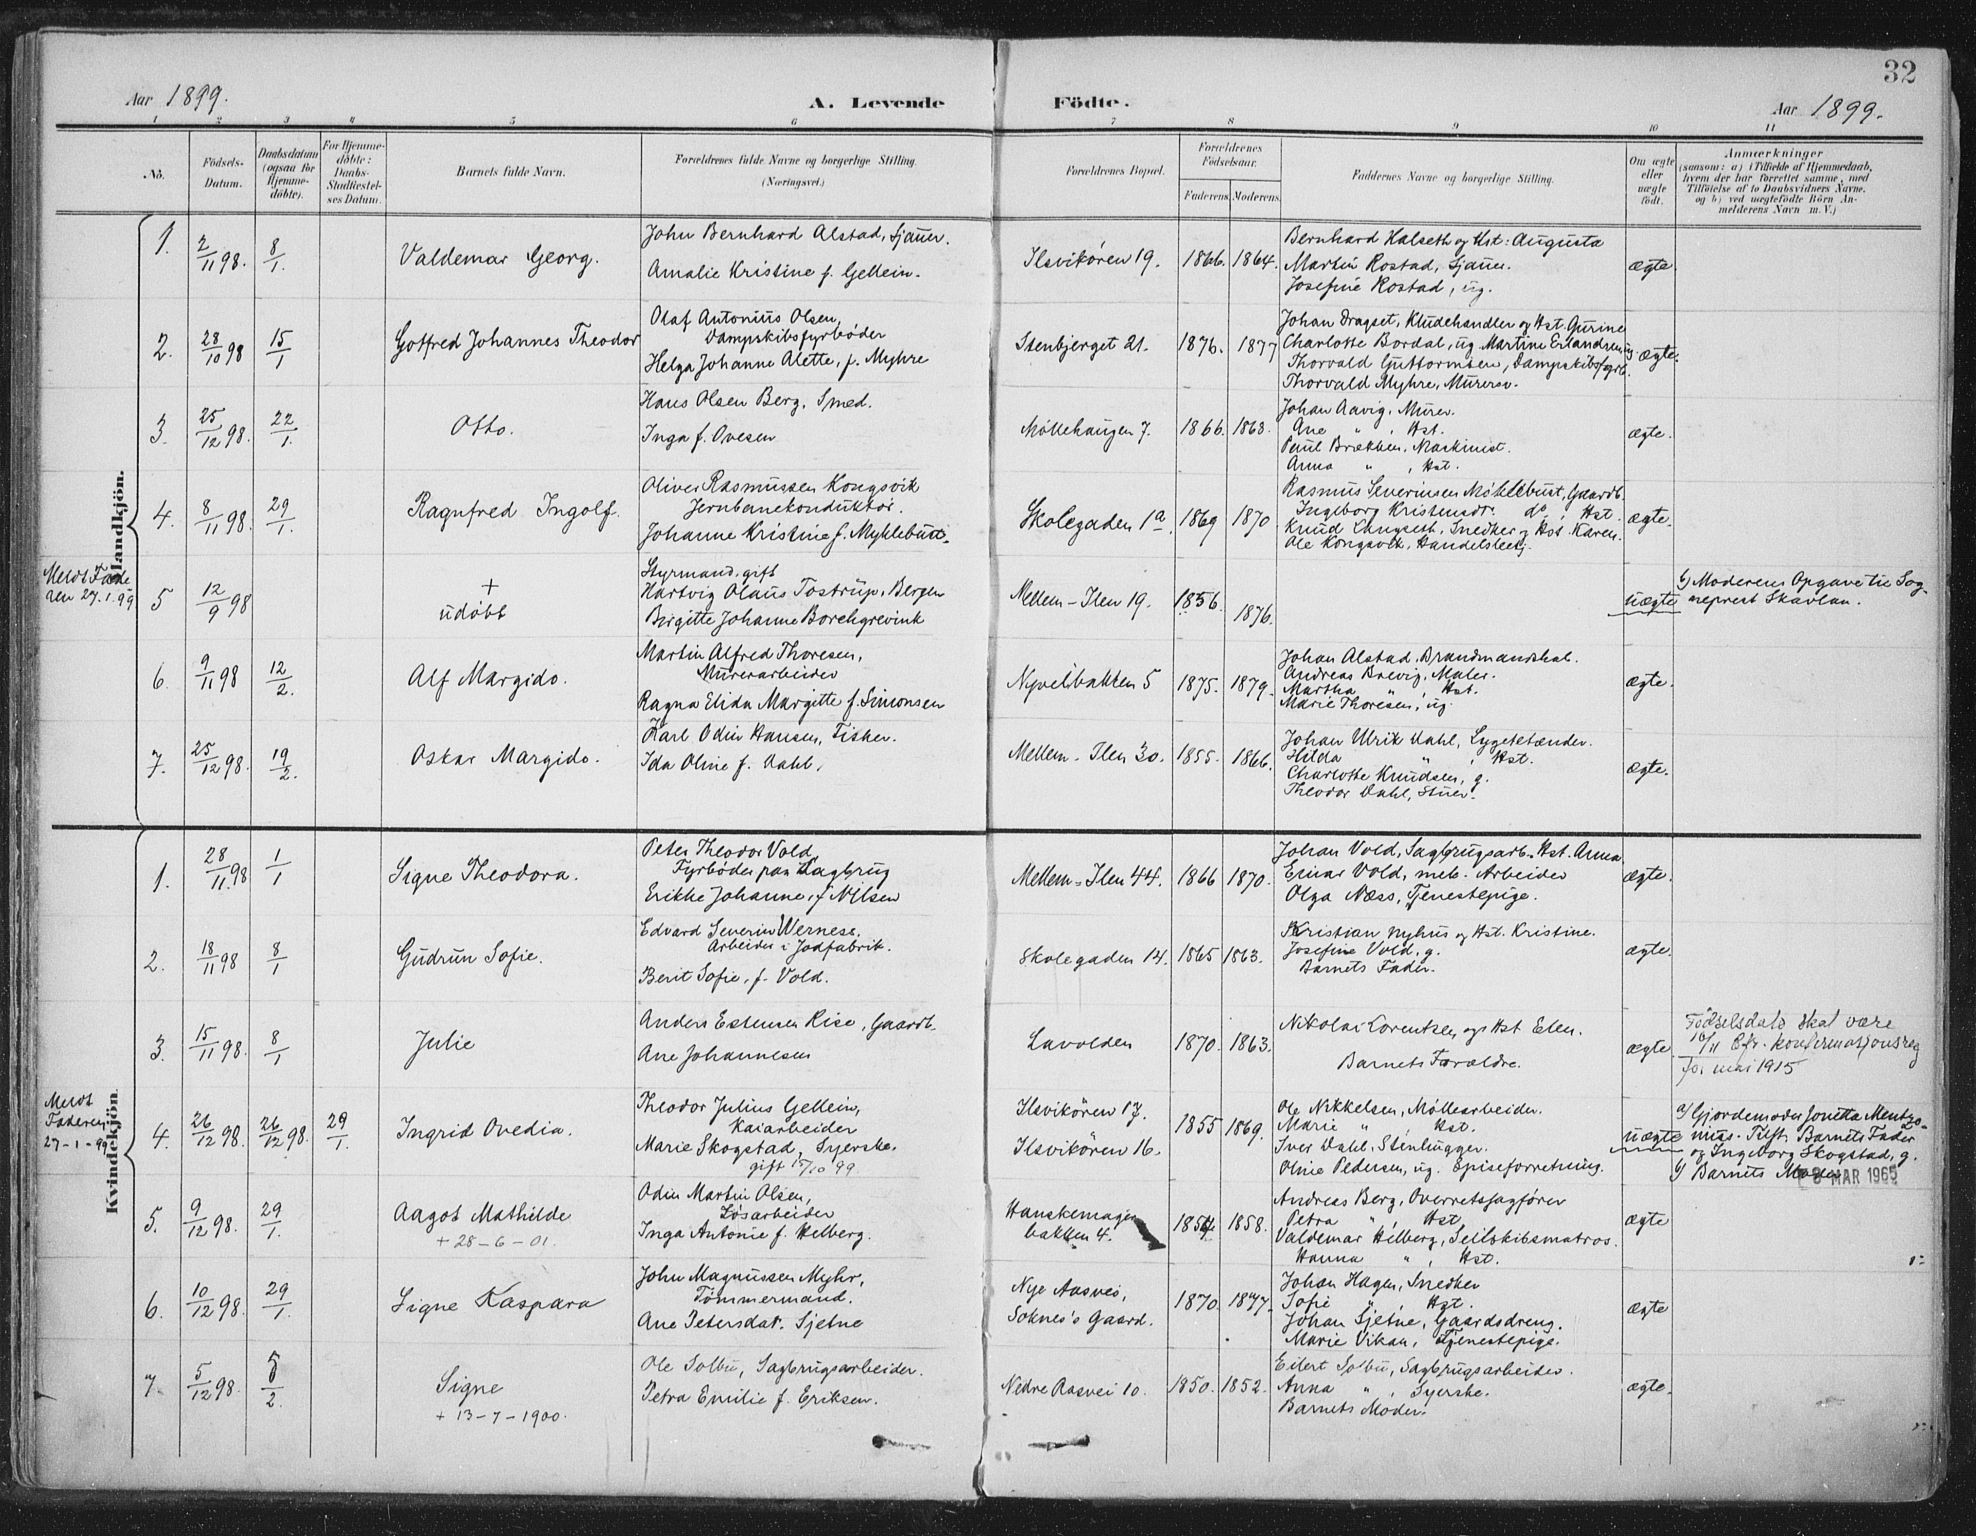 32
Aar 1899.
A. Levende Födte.
Aar 1899.
1 2 3 4 5 6 7 8 9 10 11
No.
Födsels-Datum.
Daabsdatum (ogsaa for Hjemme-döbte).
For Hjemme-döbte: Daabs-Stadfæstel-ses Datum.
Barnets fulde Navn.
Forældrenes fulde Navne og borgerlige Stilling. (Næringsvei.)
Forældrenes Bopæl.
Forældrenes Födselsaar.
Faderens. Moderens.
Faddernes Navne og borgerlige Stilling.
Om ægte eller uægte födt.
Anmærkninger
(saasom: a) i Tilfælde af Hjemmedaab,
hvem der har forrettet samme, med
Tilföielse af to Daabsvidners Navne,
og b) ved uægtefödte Börn An-
melderens Navn m. V.)
Mandkjön.
1. 2/11 98. 8/1. Valdemar Georg.
John Bernhard Alstad, Sjauer.
Amalie Kristine f. Gellein.
Ilsvikören 19. 1866. 1864.
Bernhard Halseth og Hst: Augusta
Martin Rostad, Sjauer.
Josefine Rostad, ug.
ægte.
2. 28/10 98 15/1 Gotfred Johannes Theodor
Olaf Antonius Olsen,
Dampskibsfyrbøder
Helga Johanne Alette, f. Myhre
Stenbjerget 21. 1876. 1877
Johan Dragset, Kludehandler og Hst. Gurine
Charlotte Bordal, ug Martine Erlandsen ug
Thorvald Guttormsen, Dampskibsfyrb.
Thorvald Myhre, Murersv.
ægte.
3. 25/12 98. 22/1. Otto.
Hans Olsen Berg, Smed.
Inga f. Ovesen
Møllehaugen 7. 1866. 1863.
Johan Aavig, Murer.
Ane " , Hst.
Paul Brækken, Maskinist.
Anna " , Hst.
ægte.
4. 8/11 98. 29/1. Ragnfred Ingolf.
Oliver Rasmussen Kongsvik
Jernbanekonduktør.
Johanne Kristine f. Myklebust.
Skolegaden 1a. 1869 1870.
Rasmus Severinsen Møklebust, Gaardb.
Ingeborg Kristensdr. do , Hst.
Knud Langseth, Snedker og Hst. Karen.
Ole Kongsvik, Handelsbetj.
ægte.
Meldt Fade
ren 27.1.99
5 12/9 98 + udøbt
Styrmand, gift
Hartvig Olaus Tostrup, Bergen
Birgitte Johanne Borchgrevink
Mellem-Ilen 19. 1856. 1876.
uægte
b) Moderens Opgave til Sog-
neprest Skavlan.
6. 9/11 98 12/2. Alf Margido.
Martin Alfred Thoresen,
Murerarbeider
Ragna Elida Margitte f. Simonsen
Nyveibakken 5 1875. 1879.
Johan Alstad, Brandmandskab.
Andreas Brevig, Maler.
Martha " , Hst.
Marie Thoresen, ug.
ægte.
7. 25/12 98. 19/2. Oskar Margido.
Karl Odin Hansen, Fisker.
Ida Oline f. Dahl,
Mellem-Ilen 30. 1855. 1866.
Johan Ulrik Dahl, Lygtetænder.
Hilda " , Hst.
Charlotte Knudsen, g.
Theodor Dahl, Stuer.
ægte.
Kvindekjön
1. 28/11 98 1/1 Signe Theodora.
Peter Theodor Vold
Fyrbøder paa Sagbrug
Erikke Johanne, f Nilsen
Mellem-Ilen 44. 1866 1870.
Johan Vold, Sagbrugsarb. Hst. Anna.
Einar Vold, mek. Arbeider
Olga Næss, Tjenestepige.
ægte.
2. 18/11 98 8/1 Gudrun Sofie.
Edvard Severin Werness,
Arbeider i Jodfabrik.
Berit Sofie, f. Vold.
Skolegaden 14. 1865 1863.
Kristian Nyhus og Hst. Kristine.
Josefine Vold, g.
Barnets Fader.
ægte.
3. 15/11 98. 8/1 Julie
Anders Estensen Rise, Gaardb.
Ane Johannesen
Lavolden 1870. 1863.
Nikolai Lorentsen og Hst Elen.
Barnets Forældre.
ægte
Fødselsdato skal være
16/11 Efr. konfirmasjonsreg
for mai 1915
Meldt
Faderen
27-1-99
4. 26/12 98. 26/12 98. 29/1. Ingrid Ovedia.
Theodor Julius Gellein,
Kaiarbeider
Marie Skogstad, Syerske.
gift 15/10 99.
Ilsvikören 17.
Ilsvikören 16.
1855 1869.
Ole Nikkelsen, Møllearbeider.
Marie " , Hst.
Iver Dahl, Stenhugger.
Oline Pedersen, ug. Spiseforretning.
uægte
a/ Gjordemoder Jonetta Mentzo-
nius. Tilst. Barnets Fader
og Ingeborg Skogstad, g.
b/ Barnets Moder
8 MAR 1965
5. 9/12 98. 29/1. Aagot Mathilde
+ 28-6-01.
Odin Martin Olsen,
Løsarbeider
Inga Antonie f. Hilberg.
Hanskemager
bakken 4. 1854 1858.
Andreas Berg, Overretssagfører
Petra " Hst
Valdemar Hilberg, Seilskibsmatros.
Hanna " , Hst.
ægte
6. 10/12 98. 29/1. Signe Kaspara
John Magnussen Myhr,
Tømmermand.
Ane Petersdat. Sjetne
Nye Aasvei,
Soknes's Gaard. 1870. 1877.
Johan Hagen, Snedker
Sofie " , Hst.
Johan Sjetne, Gaardsdreng.
Marie Vikan, Tjenestepige.
ægte
7. 5/12 98. 5/2. Signe
+ 13-7-1900.
Ole Solbu, Sagbrugsarbeider.
Petra Emilie f. Eriksen.
Nedre Aasvei 10. 1850. 1852.
Eilert Solbu, Sagbrugsarbeider.
Anna " , Syerske.
Barnets Moder.
ægte.